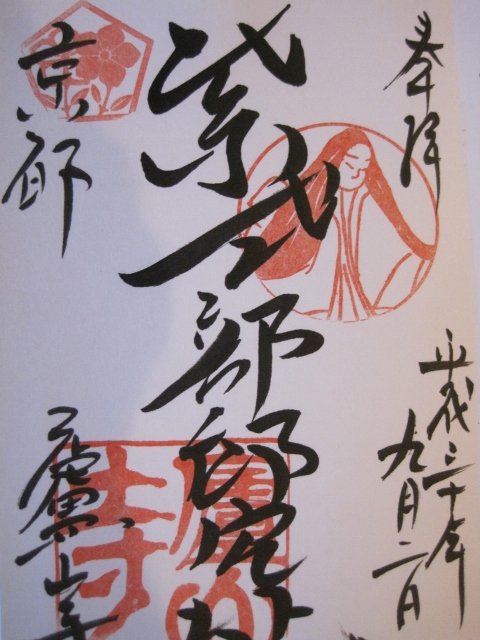 奉拝
平成三十年
九月二日
紫式部邸宅
京都
廬山寺